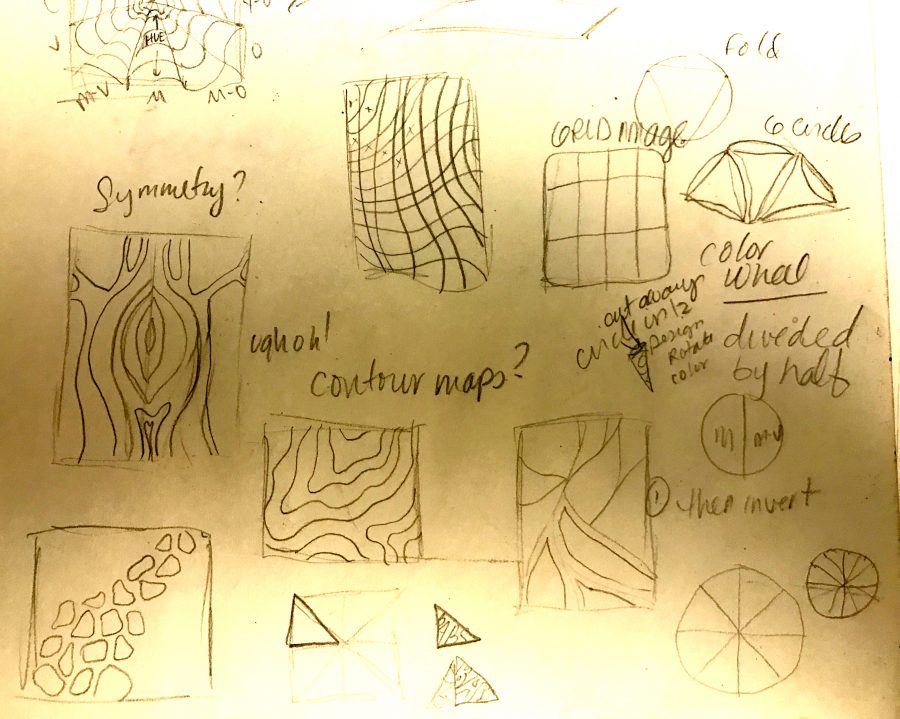 HUE
V
O
M-V
M
M-O
Fold
GRID IMAGE
6 circles
Symmetry?
color
wheel
cut away
circle in 1/2
Design
Rotate
color
divided
by half
ughoh!
contour maps?
M
M-V
1
then invert